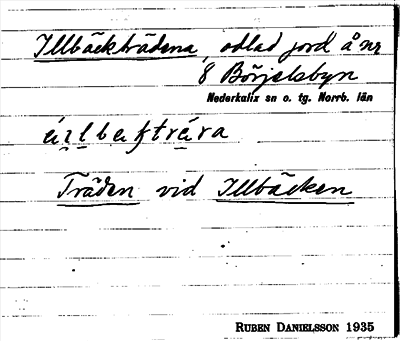 Illbäckträdena, odlad jord å nr
8 Börjelsbyn
Nederkalix sn o. tg. Norrb. län
Träden vid Illbäcken
RUBEN DANIELSSON 1935